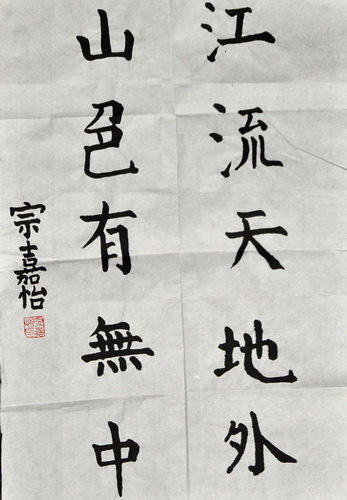 江流天地外
山色有無中
宗吉嘉怡